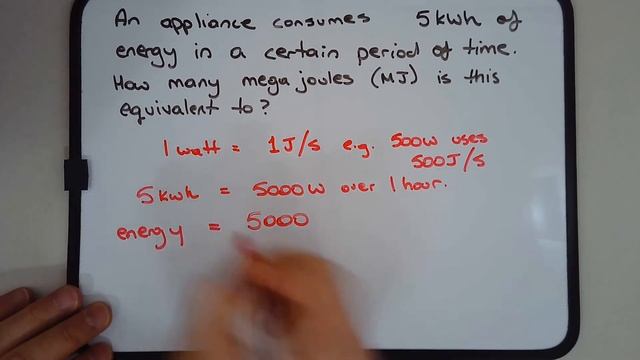 An appliance consumes 5kwh of
energy in a certain period of time.
How many mega joules (MJ) is this
equivalent to?
1 watt = 1J/s e.g. 500W uses
500J/s
5kwh = 5000W over 1 hour.
energy = 5000